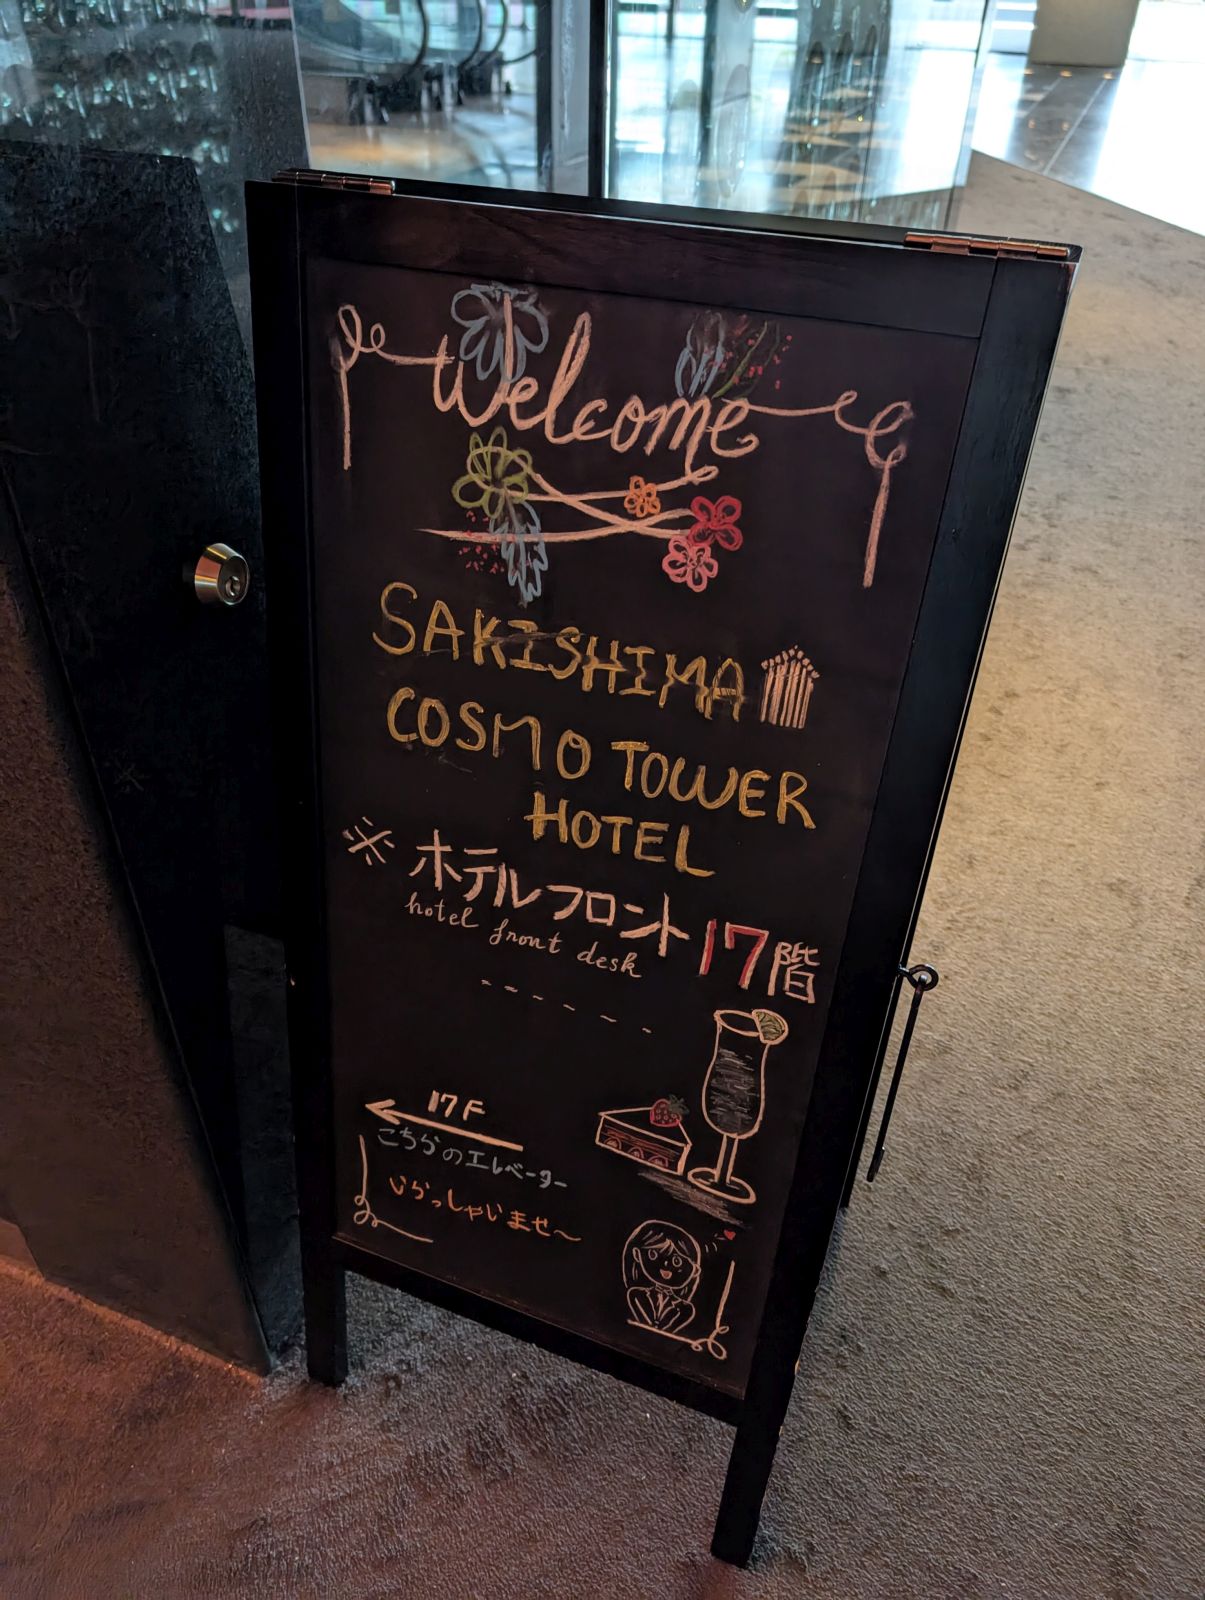 Welcome
SAKISHIMA
COSMO TOWER
HOTEL
※ ホテルフロント 17階
hotel front desk
17F
こちらのエレベーター
いらっしゃいませ〜